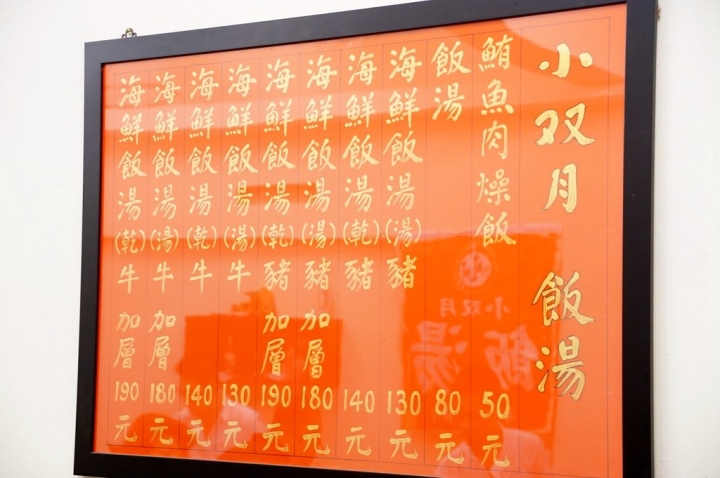 小双月 飯湯
鮪魚肉燥飯 50元
飯湯 80元
海鮮飯湯(湯)豬 130元
海鮮飯湯(乾)豬 140元
海鮮飯湯(湯)豬 加層 180元
海鮮飯湯(乾)豬 加層 190元
海鮮飯湯(湯)牛 130元
海鮮飯湯(乾)牛 140元
海鮮飯湯(湯)牛 加層 180元
海鮮飯湯(乾)牛 加層 190元
小双月
飯湯